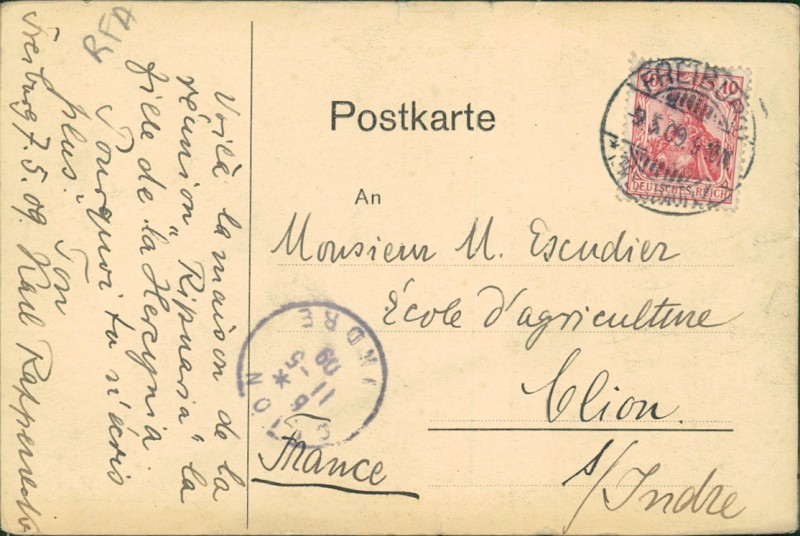 RFA
Voilà la maison de la
réunion "Ripuaria" la
fille de la Hercynia.
Pourquoi tu n'écris
plus? Ton
Freiburg 7.5.09. Karl
Postkarte
An
Monsieur M. Escudier
École d'agriculture
Clion
s/Indre
France
10 10
DEUTSCHES REICH
FREIBURG
9.5.09.
CLION
11 - 5
09
INDRE